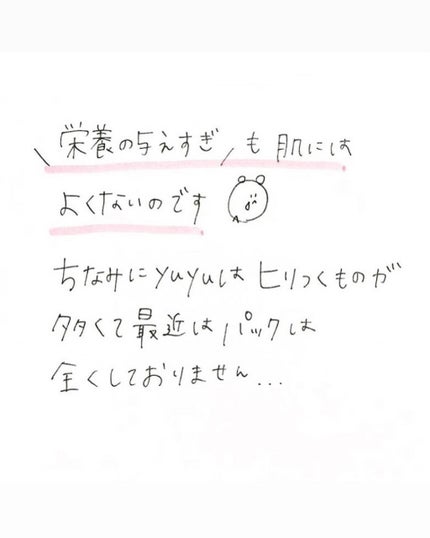 \ 栄養の与えすぎ / も 肌には
よくないのです
ちなみにyuyuはヒリつくものが
多くて最近はパックは
全くしておりません...